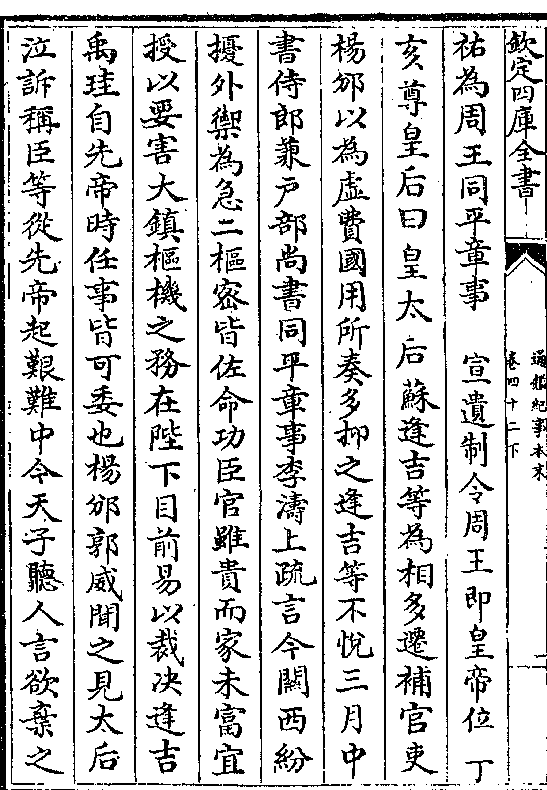 欽定四庫全書
通鑑紀事本末
卷四十二下
二
祐為周王同平章事　宣遺制令周王即皇帝位　丁
亥尊皇后曰皇太后蘇逢吉等為相多遷補官吏
楊邠以為虛費國用所奏多抑之逢吉等不悅三月中
書侍郎兼戶部尚書同平章事李濤上疏言今關西紛
擾外禦為急二樞密皆佐命功臣官雖貴而家未富宜
授以要害大鎮樞機之務在陛下目前易以裁决逢吉
禹珪自先帝時任事皆可委也楊邠郭威聞之見太后
泣訴稱臣等從先帝起艱難中今天子聽人言欲棄之